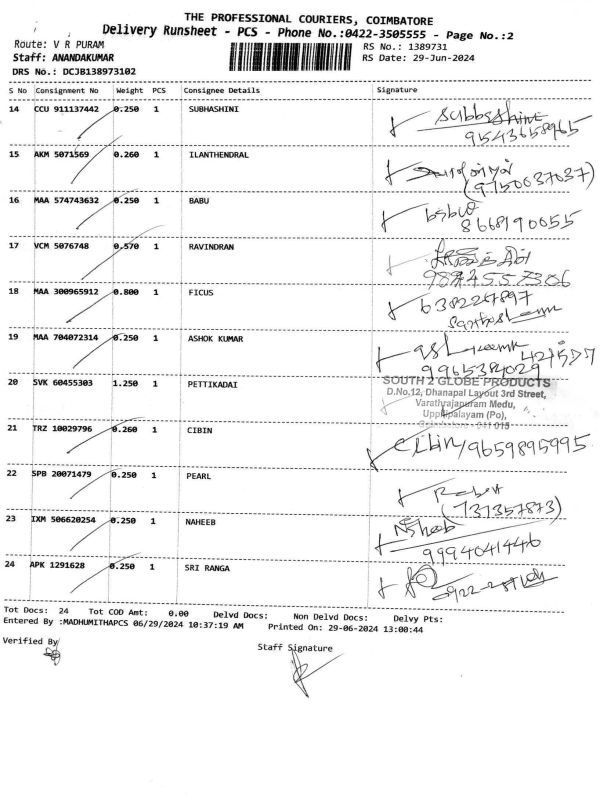 THE PROFESSIONAL COURIERS, COIMBATORE
Delivery Runsheet - PCS - Phone No.:0422-3505555 - Page No.:2
Route: V R PURAM
RS No.: 1389731
Staff: ANANDAKUMAR
RS Date: 29-Jun-2024
DRS No.: DCJB138973102
S No Consignment No Weight PCS Consignee Details Signature
14 CCU 911137442 0.250 1 SUBHASHINI
9543658965
15 AKM 5071569 0.260 1 ILANTHENDRAL
(9750037037)
16 MAA 574743632 0.250 1 BABU babu
8668190055
17 VCM 5076748 0.570 1 RAVINDRAN
18 MAA 300965912 0.800 1 FICUS 6382267897
19 MAA 704072314 0.250 1 ASHOK KUMAR
9965384029
20 SVK 60455303 1.250 1 PETTIKADAI
SOUTH 2 GLOBE PRODUCTS
D.No.12, Dhanapal Layout 3rd Street,
Varathrajapuram Medu,
Uppilipalayam (Po),
21 TRZ 10029796 0.260 1 CIBIN Cibin/9659895995
22 SPB 20071479 0.250 1 PEARL
(737357873)
23 IXM 506620254 0.250 1 NAHEEB
9994041446
24 APK 1291628 0.250 1 SRI RANGA
Tot Docs: 24 Tot COD Amt: 0.00 Delvd Docs: Non Delvd Docs: Delvy Pts:
Entered By :MADHUMITHAPCS 06/29/2024 10:37:19 AM Printed On: 29-06-2024 13:00:44
Verified By
Staff Signature